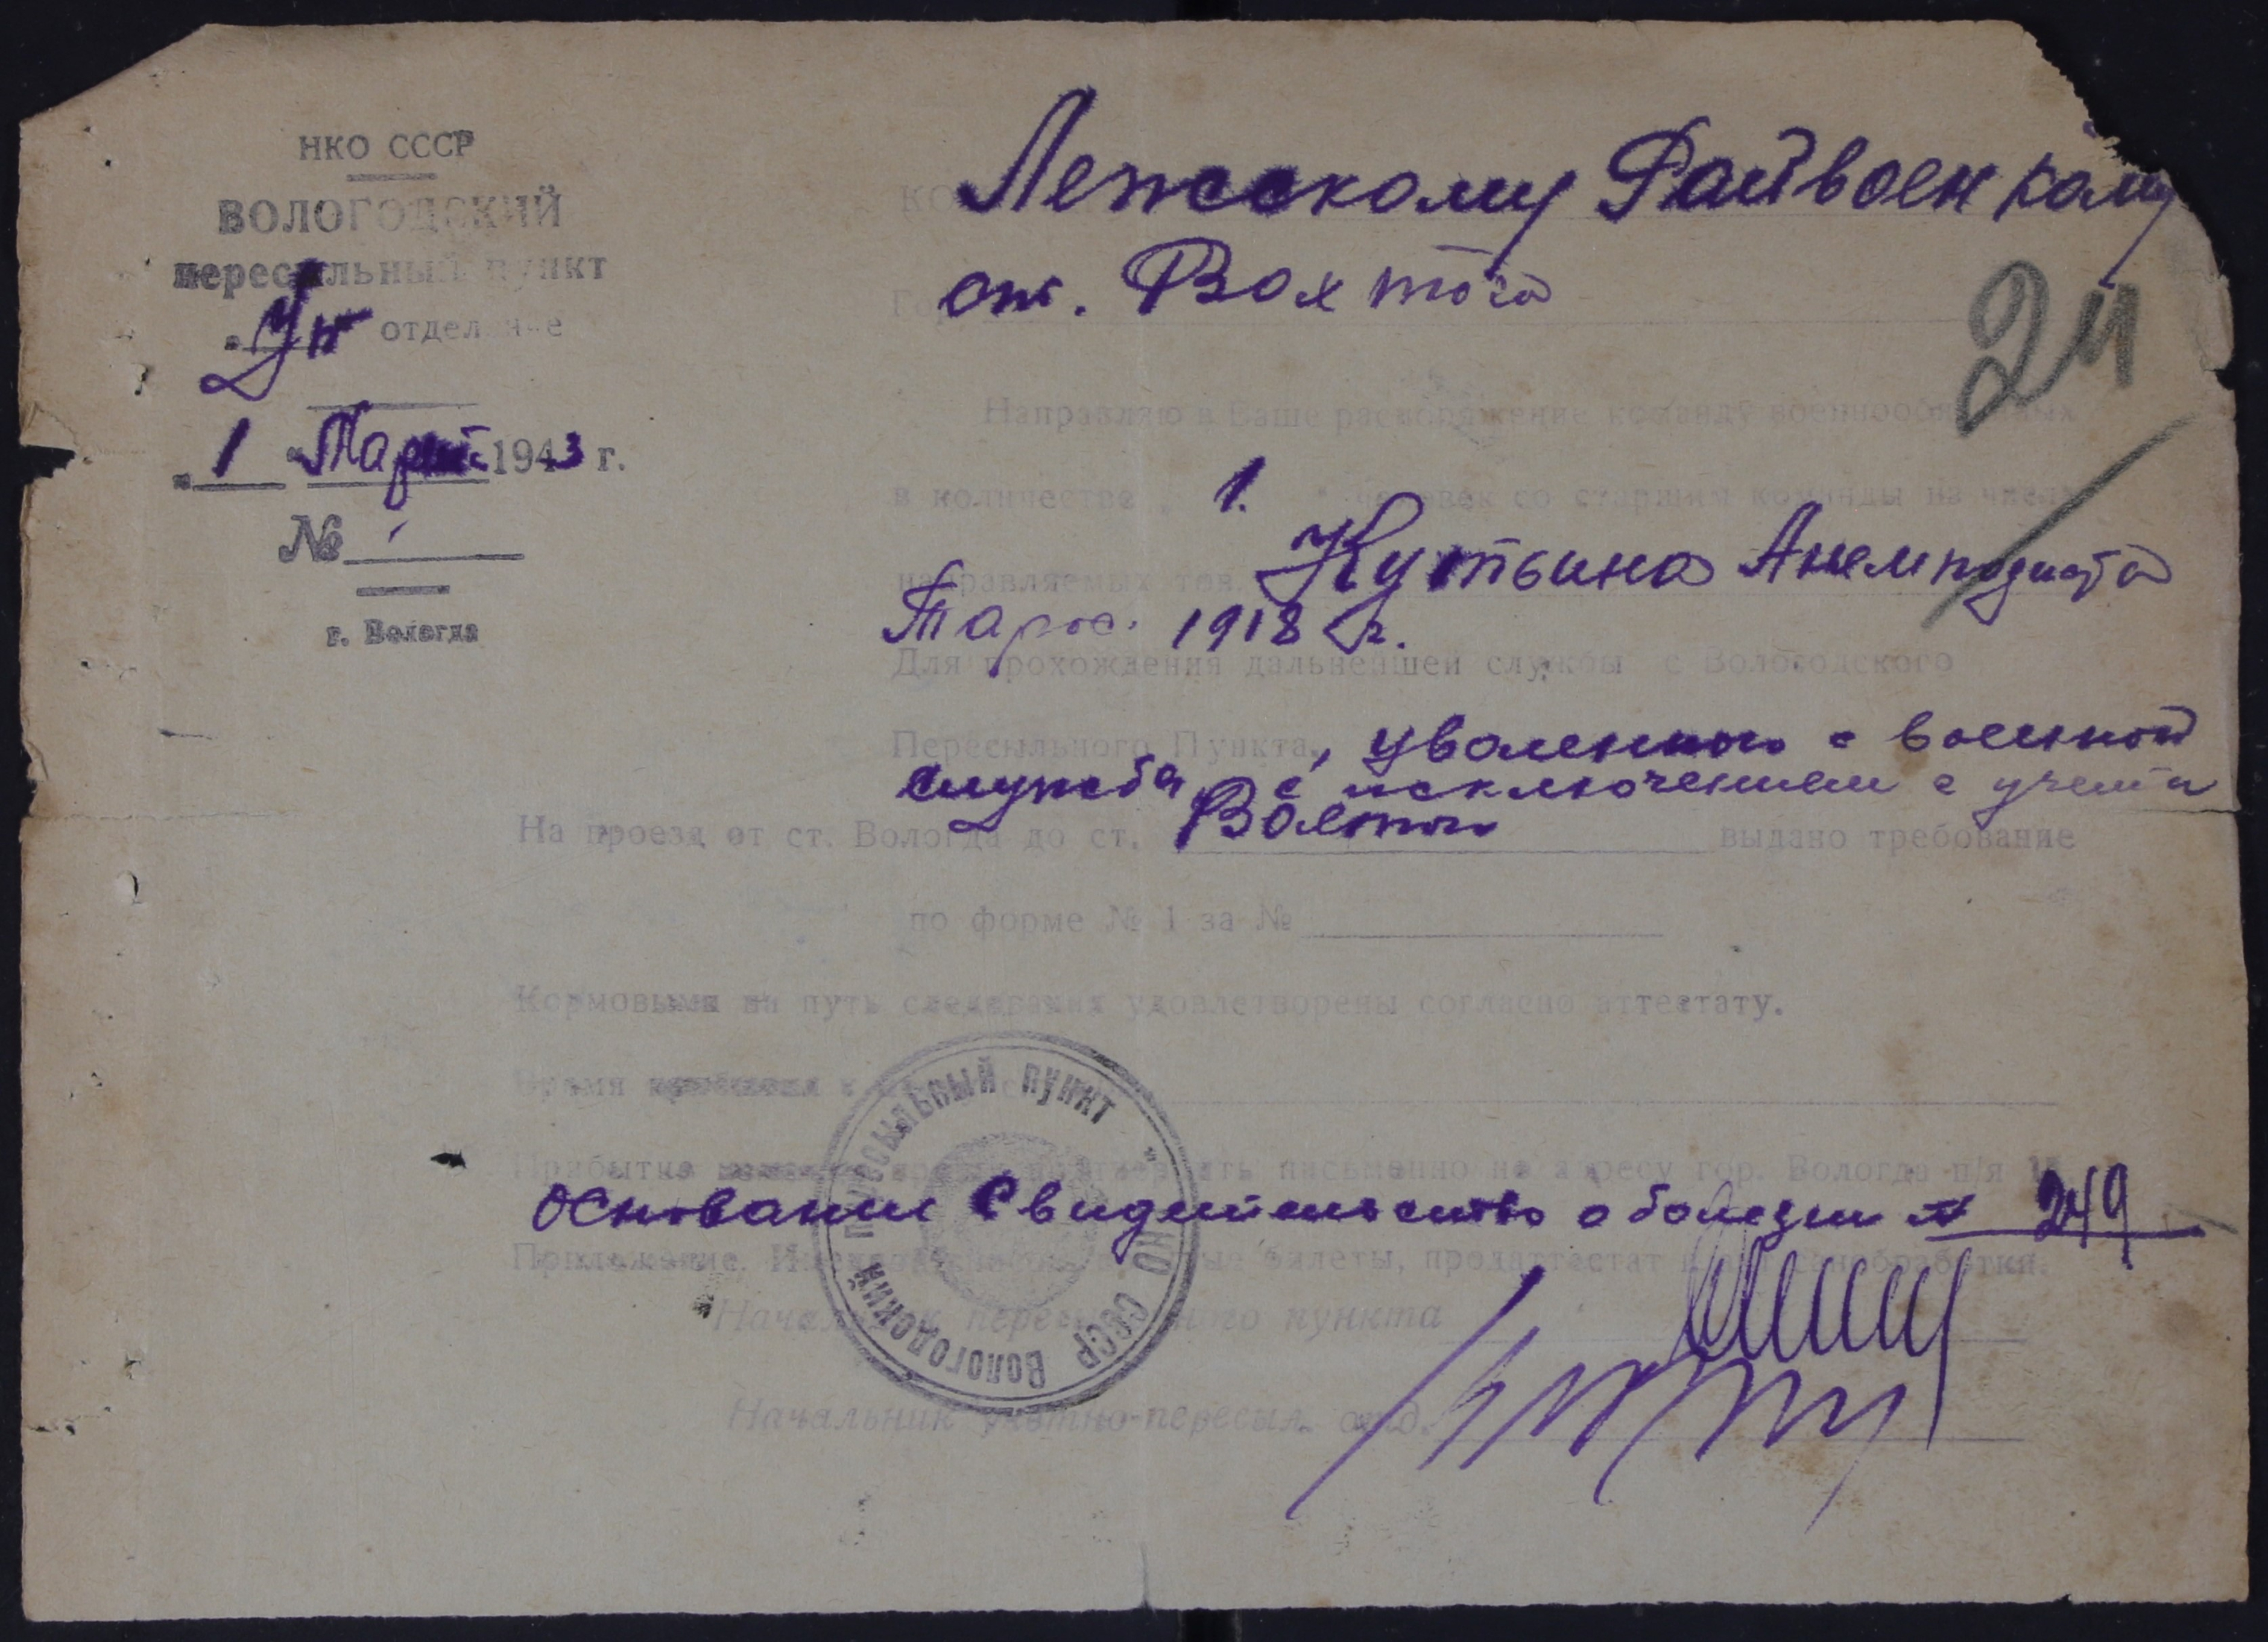 НКО СССР
ВОЛОГОДСКИЙ
пересыльный пункт
Уп отделение
„1“ Марта 1943 г.
№
г. Вологда
Лежскому Райвоенкому
Гор. ст. Вохтога
24
Направляю в Ваше распоряжение команду военнообязанных
в количестве 1. человек со старшим команды из числа
направляемых тов. Кутьина Анемподиста
1918 г.
Для прохождения дальнейшей службы с Вологодского
Пересыльного Пункта, уволенного с военной
служба с исключением с учета
На проезд от ст. Вологда до ст. Вохтога выдано требование
по форме № 1 за №
Кормовыми на путь следования удовлетворены согласно аттестату.
Время
Прибытие письменно по адресу гор. Вологда п/я
Основание Свидетельство о болезни № 249
Приложение. билеты, продаттестат санобработки.
Начальник пересыльного пункта
Начальник учетно-пересыл. отд.
НКО СССР Вологодский пересыльный пункт